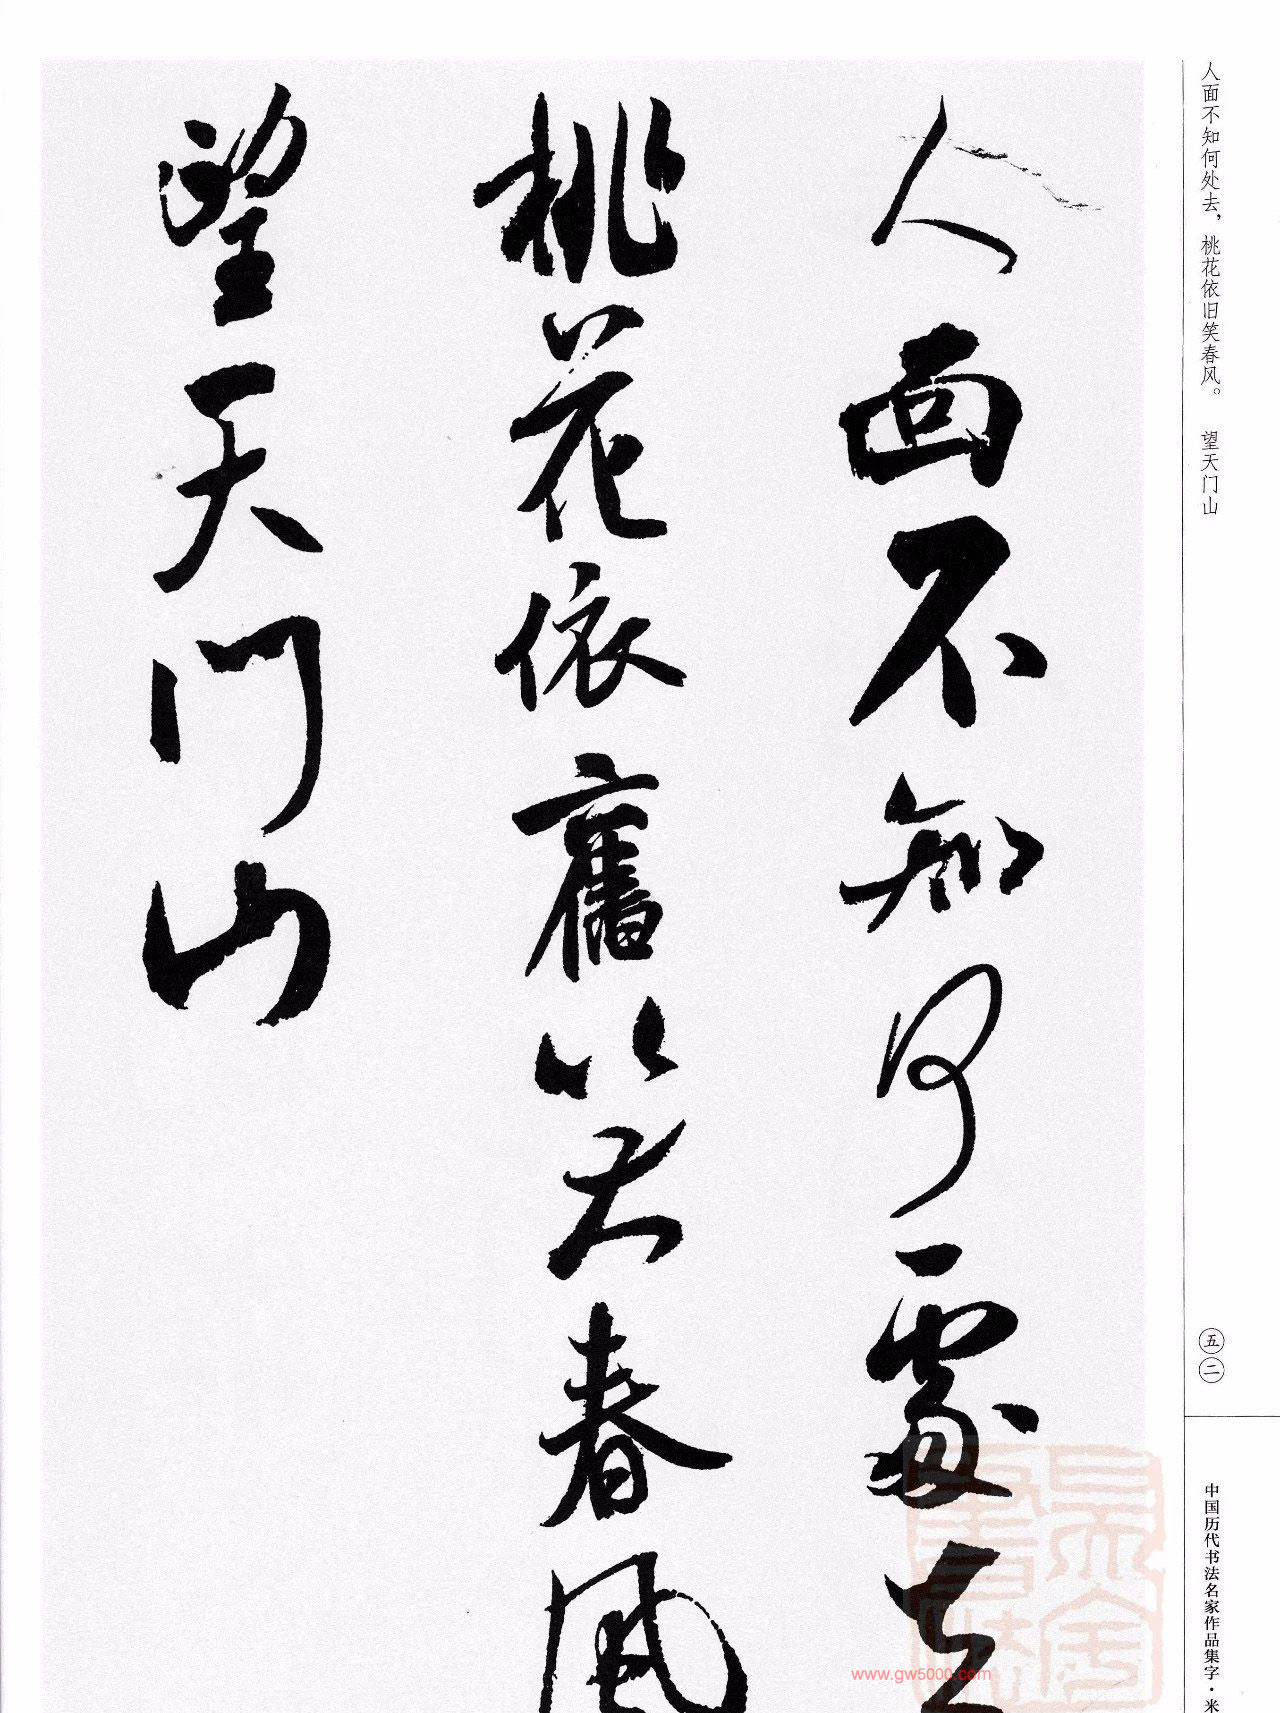 人面不知何处去，桃花依旧笑春风。 望天门山
五二
中国历代书法名家作品集字·米
人面不知何處去
桃花依舊笑春風
望天門山
www.gw5000.com